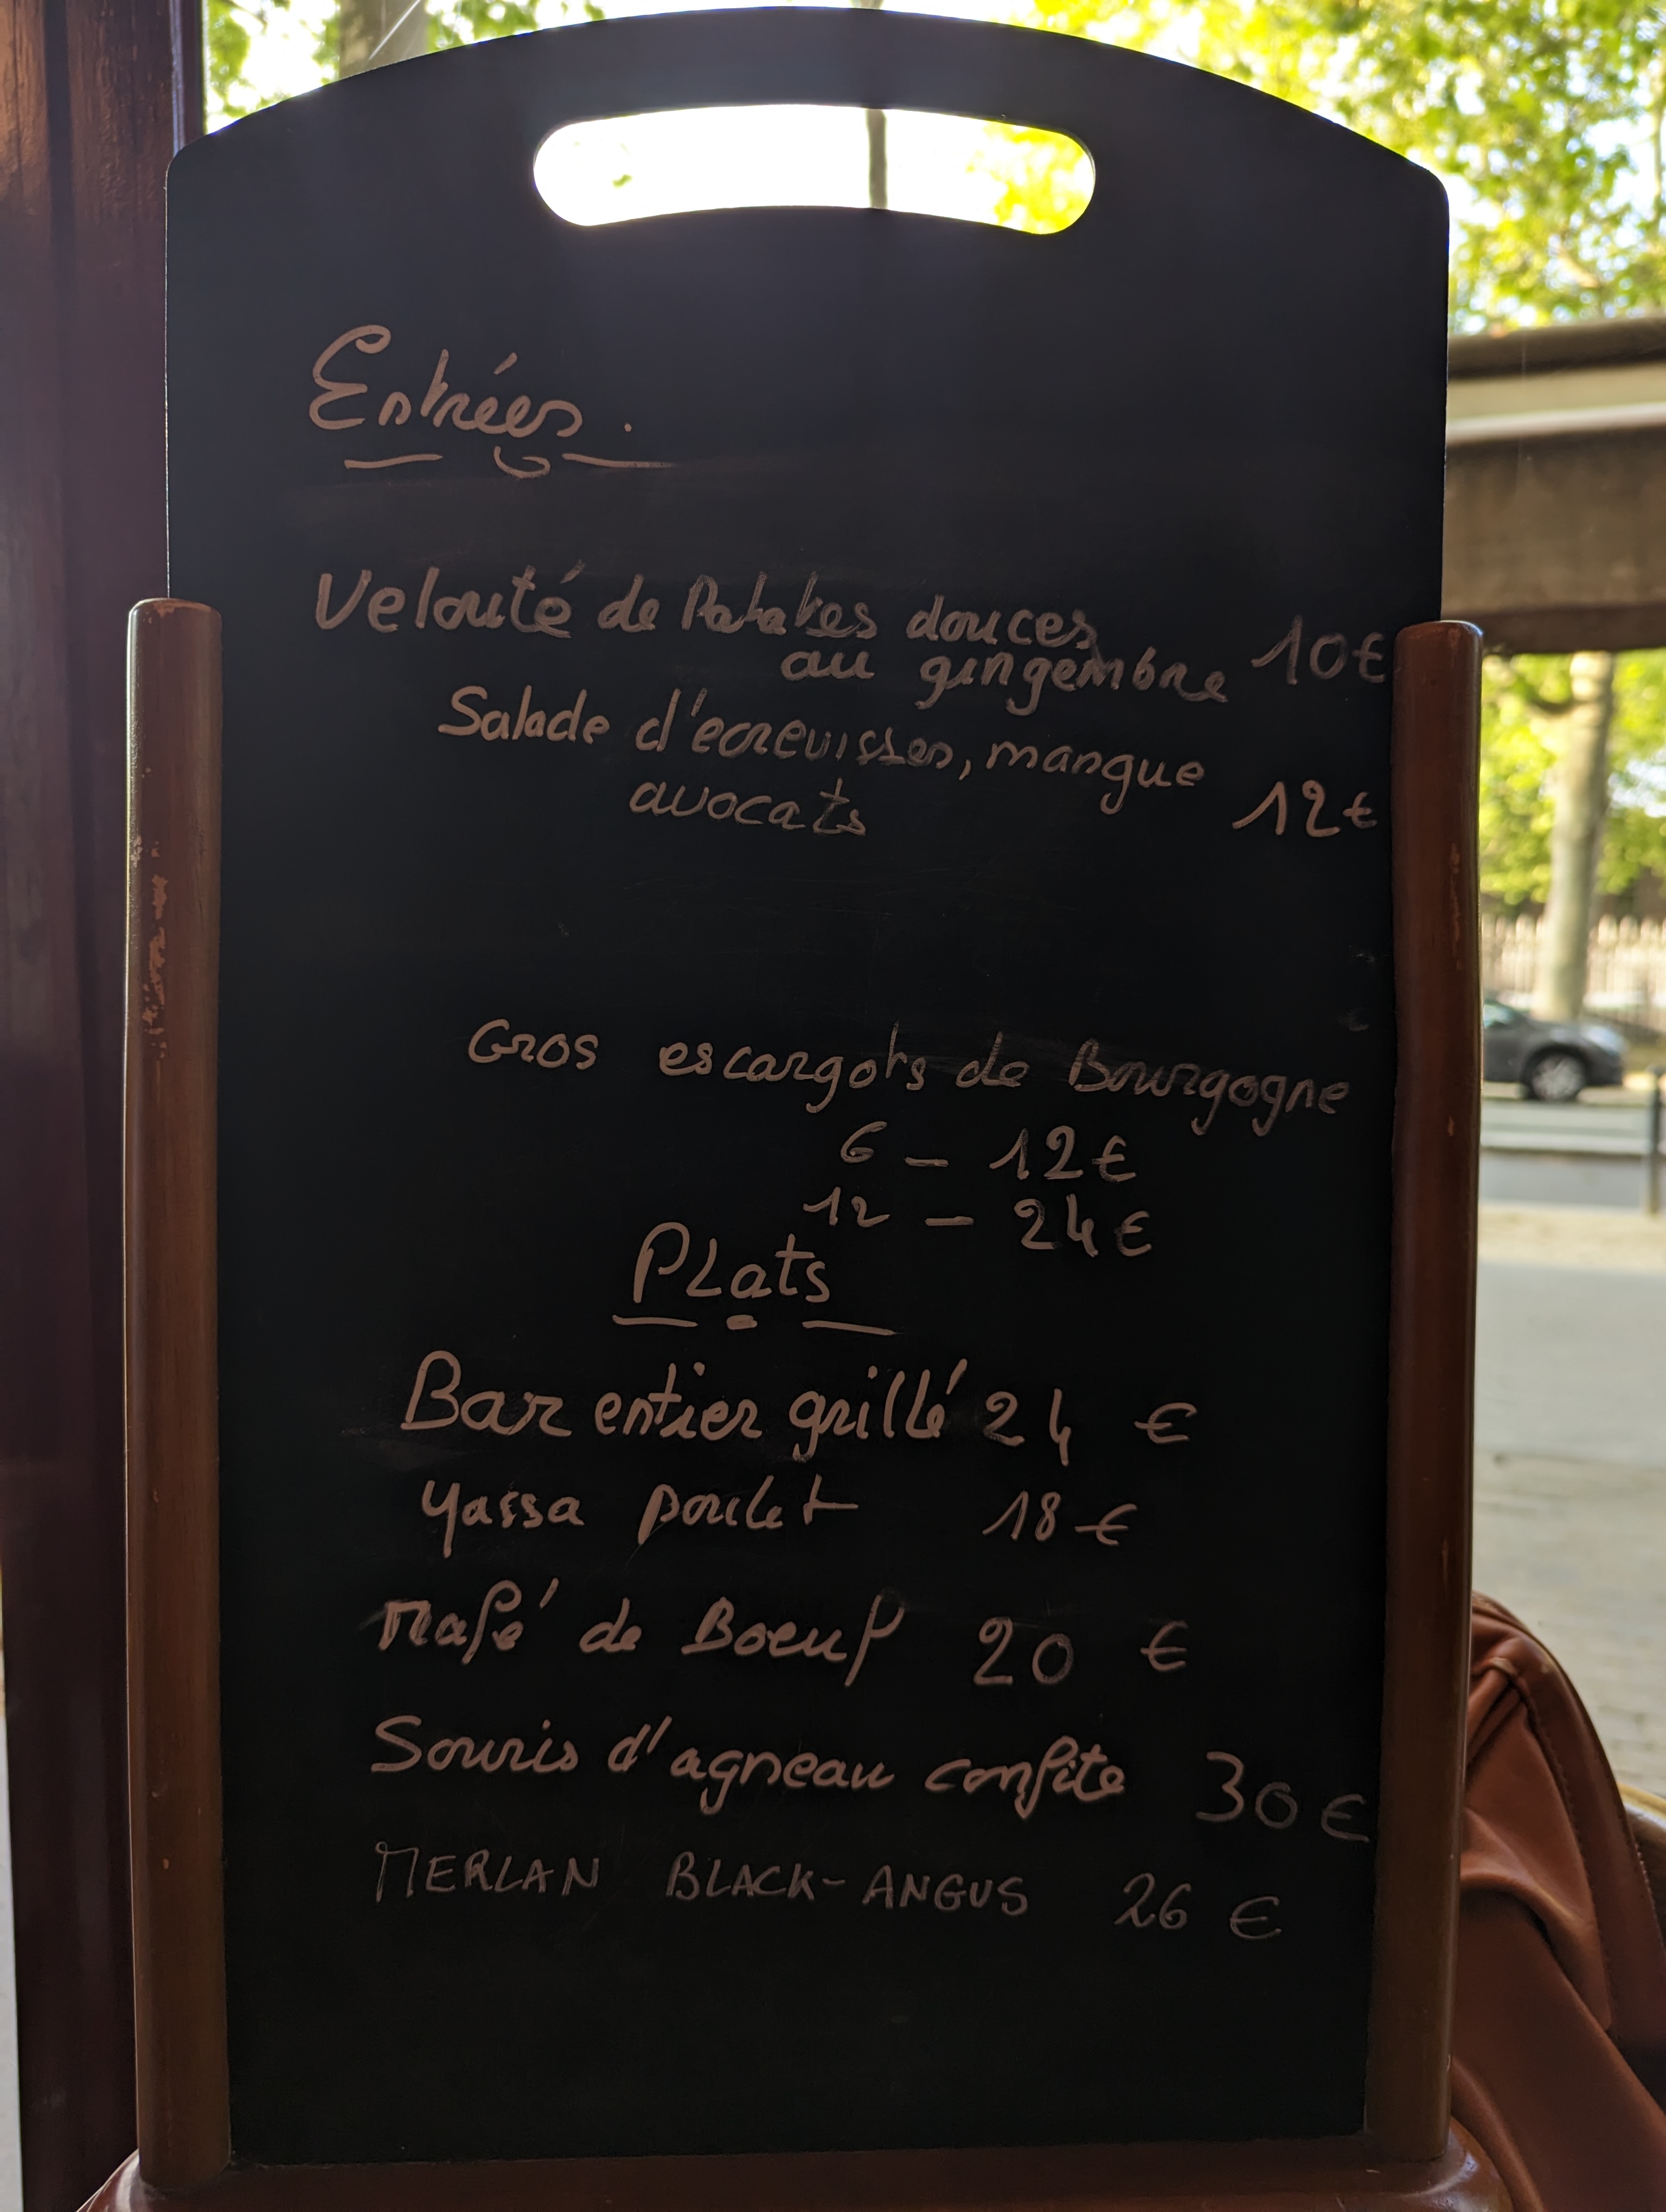 Entrées.
Velouté de Patates douces
au gingembre 10€
Salade d'ecrevisses, mangue
avocats 12€
Gros escargots de Bourgogne
6 - 12€
12 - 24€
Plats
Bar entier grillé 24 €
Yassa poulet 18€
Mafé de Boeuf 20 €
Souris d'agneau confite 30€
MERLAN BLACK-ANGUS 26 €